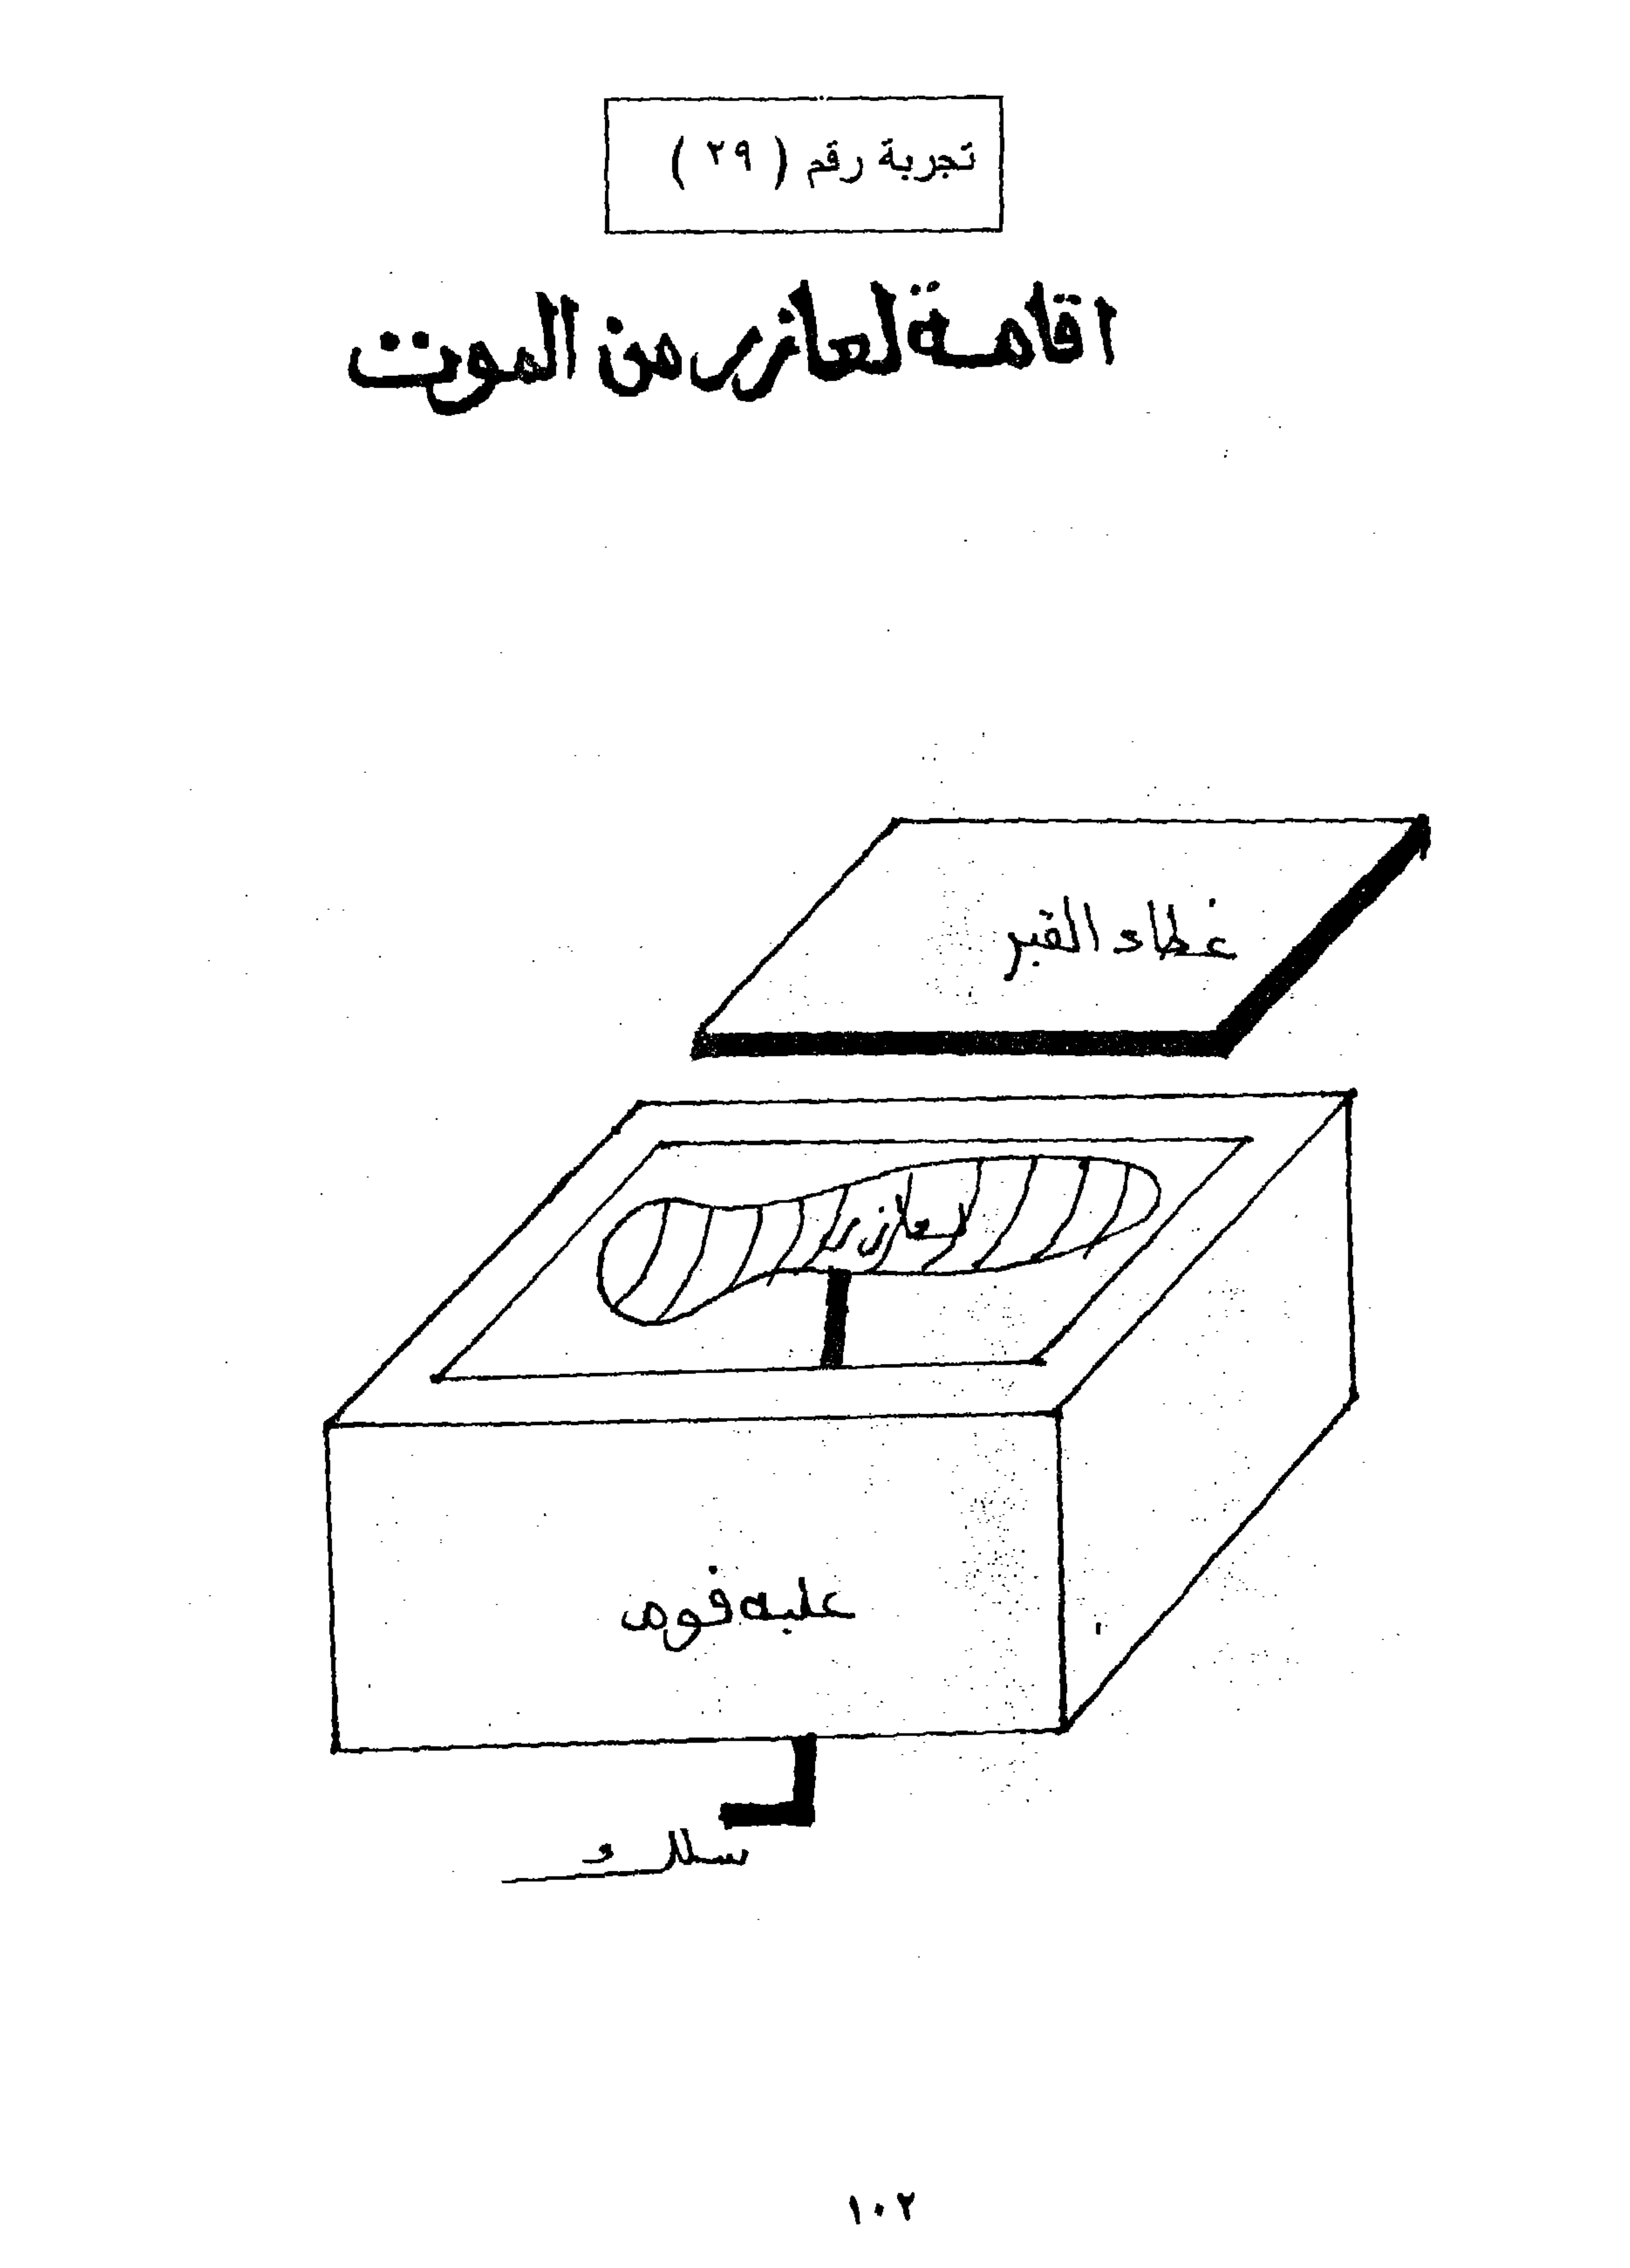 تجربة رقم ( ٢٩ )
اقامة لعازر من الموت
غطاء القبر
لعازر
علبه فوم
سلك
١٠٢